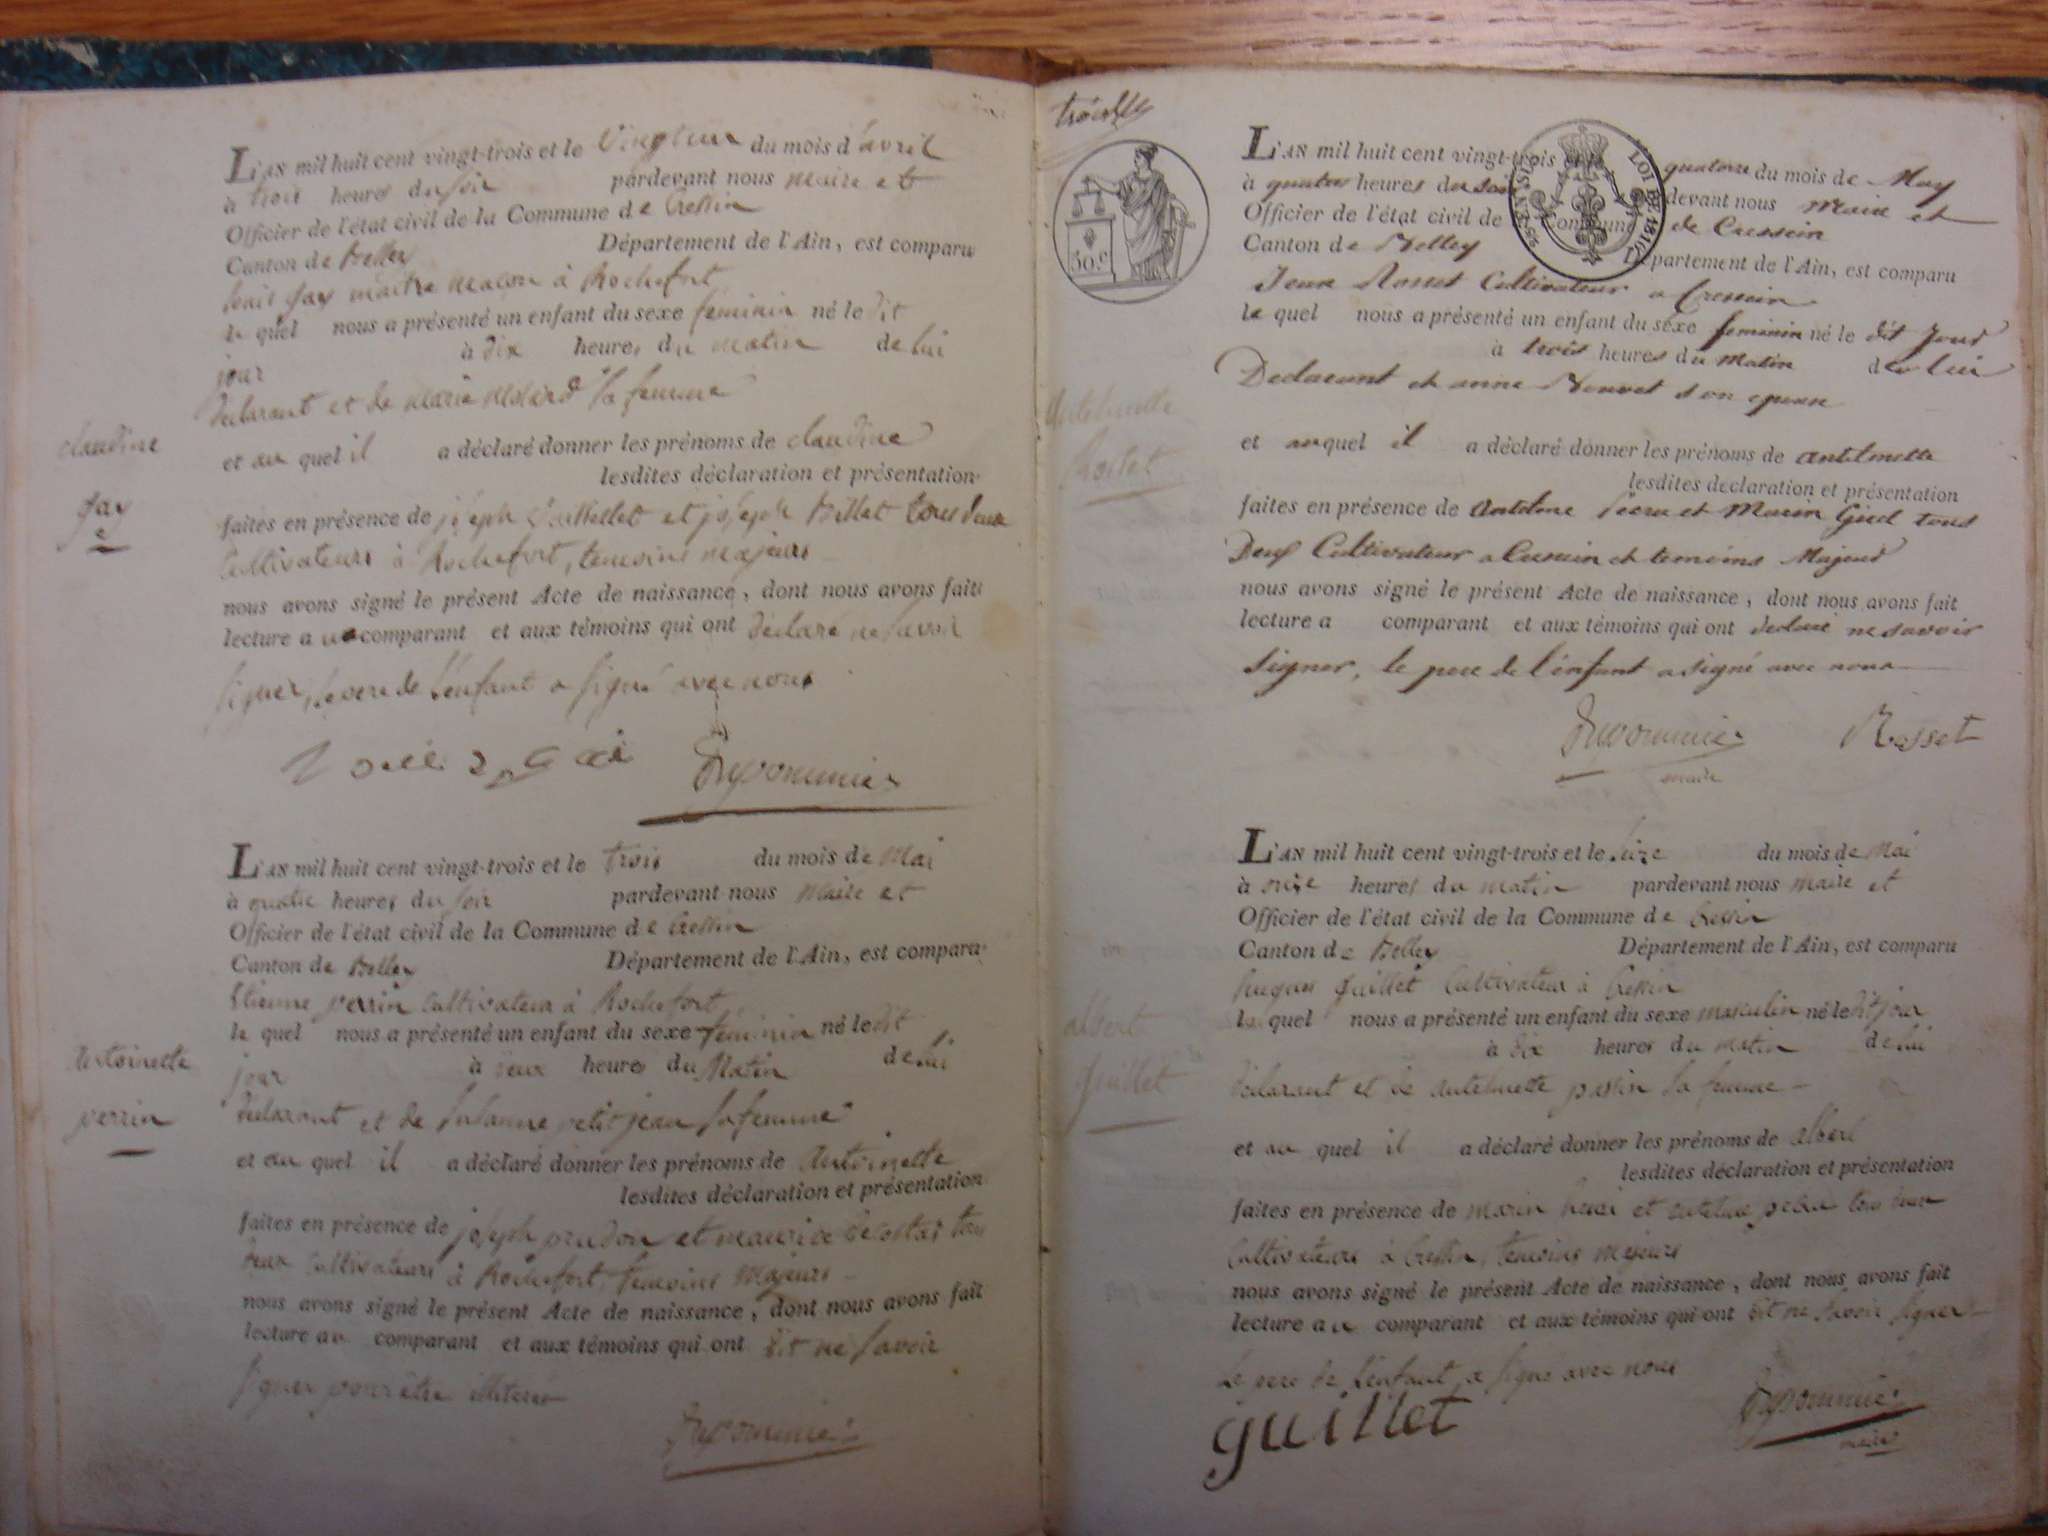 claudine
gay
L'AN mil huit cent vingt-trois et le vingt un du mois d'avril
à trois heures du soir pardevant nous maire et
Officier de l'état civil de la Commune de Cressin
Canton de Belley Département de l'Ain, est comparu
gay maitre maçon à Rochefort
le quel nous a présenté un enfant du sexe féminin né le dit
jour à dix heures du matin de lui
déclarant et de marie sa femme
et au quel il a déclaré donner les prénoms de claudine
lesdites déclaration et présentation
faites en présence de joseph et joseph Billet tous deux
Cultivateurs à Rochefort, temoins majeurs
nous avons signé le présent Acte de naissance, dont nous avons fait
lecture au comparant et aux témoins qui ont déclaré ne savoir
signer, le pere de l'enfant a signé avec nous
Antoinette
perrin
L'AN mil huit cent vingt-trois et le trois du mois de Mai
à quatre heures du soir pardevant nous maire et
Officier de l'état civil de la Commune de Cressin
Canton de Belley Département de l'Ain, est comparu
Etienne perrin Cultivateur à Rochefort
le quel nous a présenté un enfant du sexe feminin né le dit
jour à deux heures du Matin de lui
déclarant et de susanne petit jean sa femme
et au quel il a déclaré donner les prénoms de Antoinette
lesdites déclaration et présentation
faites en présence de joseph prudon et maurice tous
deux Cultivateurs à Rochefort, temoins majeurs
nous avons signé le présent Acte de naissance, dont nous avons fait
lecture au comparant et aux témoins qui ont dit ne savoir
signer pour être
30.c
LOI DE 1816
antelmette
Rosset
L'AN mil huit cent vingt-trois quatorze du mois de May
à quatre heures du soir devant nous Maire et
Officier de l'état civil de Commune de Cressein
Canton de Belley Département de l'Ain, est comparu
Jean Rosset Cultivateur a Cressein
le quel nous a présenté un enfant du sexe feminin né le dit jour
à trois heures du matin de lui
Declarant et anne son epouse
et au quel il a déclaré donner les prénoms de antelmette
lesdites déclaration et présentation
faites en présence de Antelme et Marin tous
Deux Cultivateur a Cressein et temoins Majeurs
nous avons signé le présent Acte de naissance, dont nous avons fait
lecture a comparant et aux témoins qui ont declaré ne savoir
signer, le pere de l'énfant a signé avec nous
Rosset
maire
albert
guillet
L'AN mil huit cent vingt-trois et le seize du mois de Mai
à onze heures du matin pardevant nous maire et
Officier de l'état civil de la Commune de Cressin
Canton de Belley Département de l'Ain, est comparu
guillet Cultivateur à Cressin
le quel nous a présenté un enfant du sexe masculin né le dit jour
à dix heures du matin de lui
déclarant et de antelmette sa femme
et au quel il a déclaré donner les prénoms de albert
lesdites déclaration et présentation
faites en présence de marin et antelme tous deux
Cultivateurs à Cressin, temoins majeurs
nous avons signé le présent Acte de naissance, dont nous avons fait
lecture au comparant et aux témoins qui ont dit ne savoir signer
Le pere de l'enfant a signé avec nous
guillet
maire